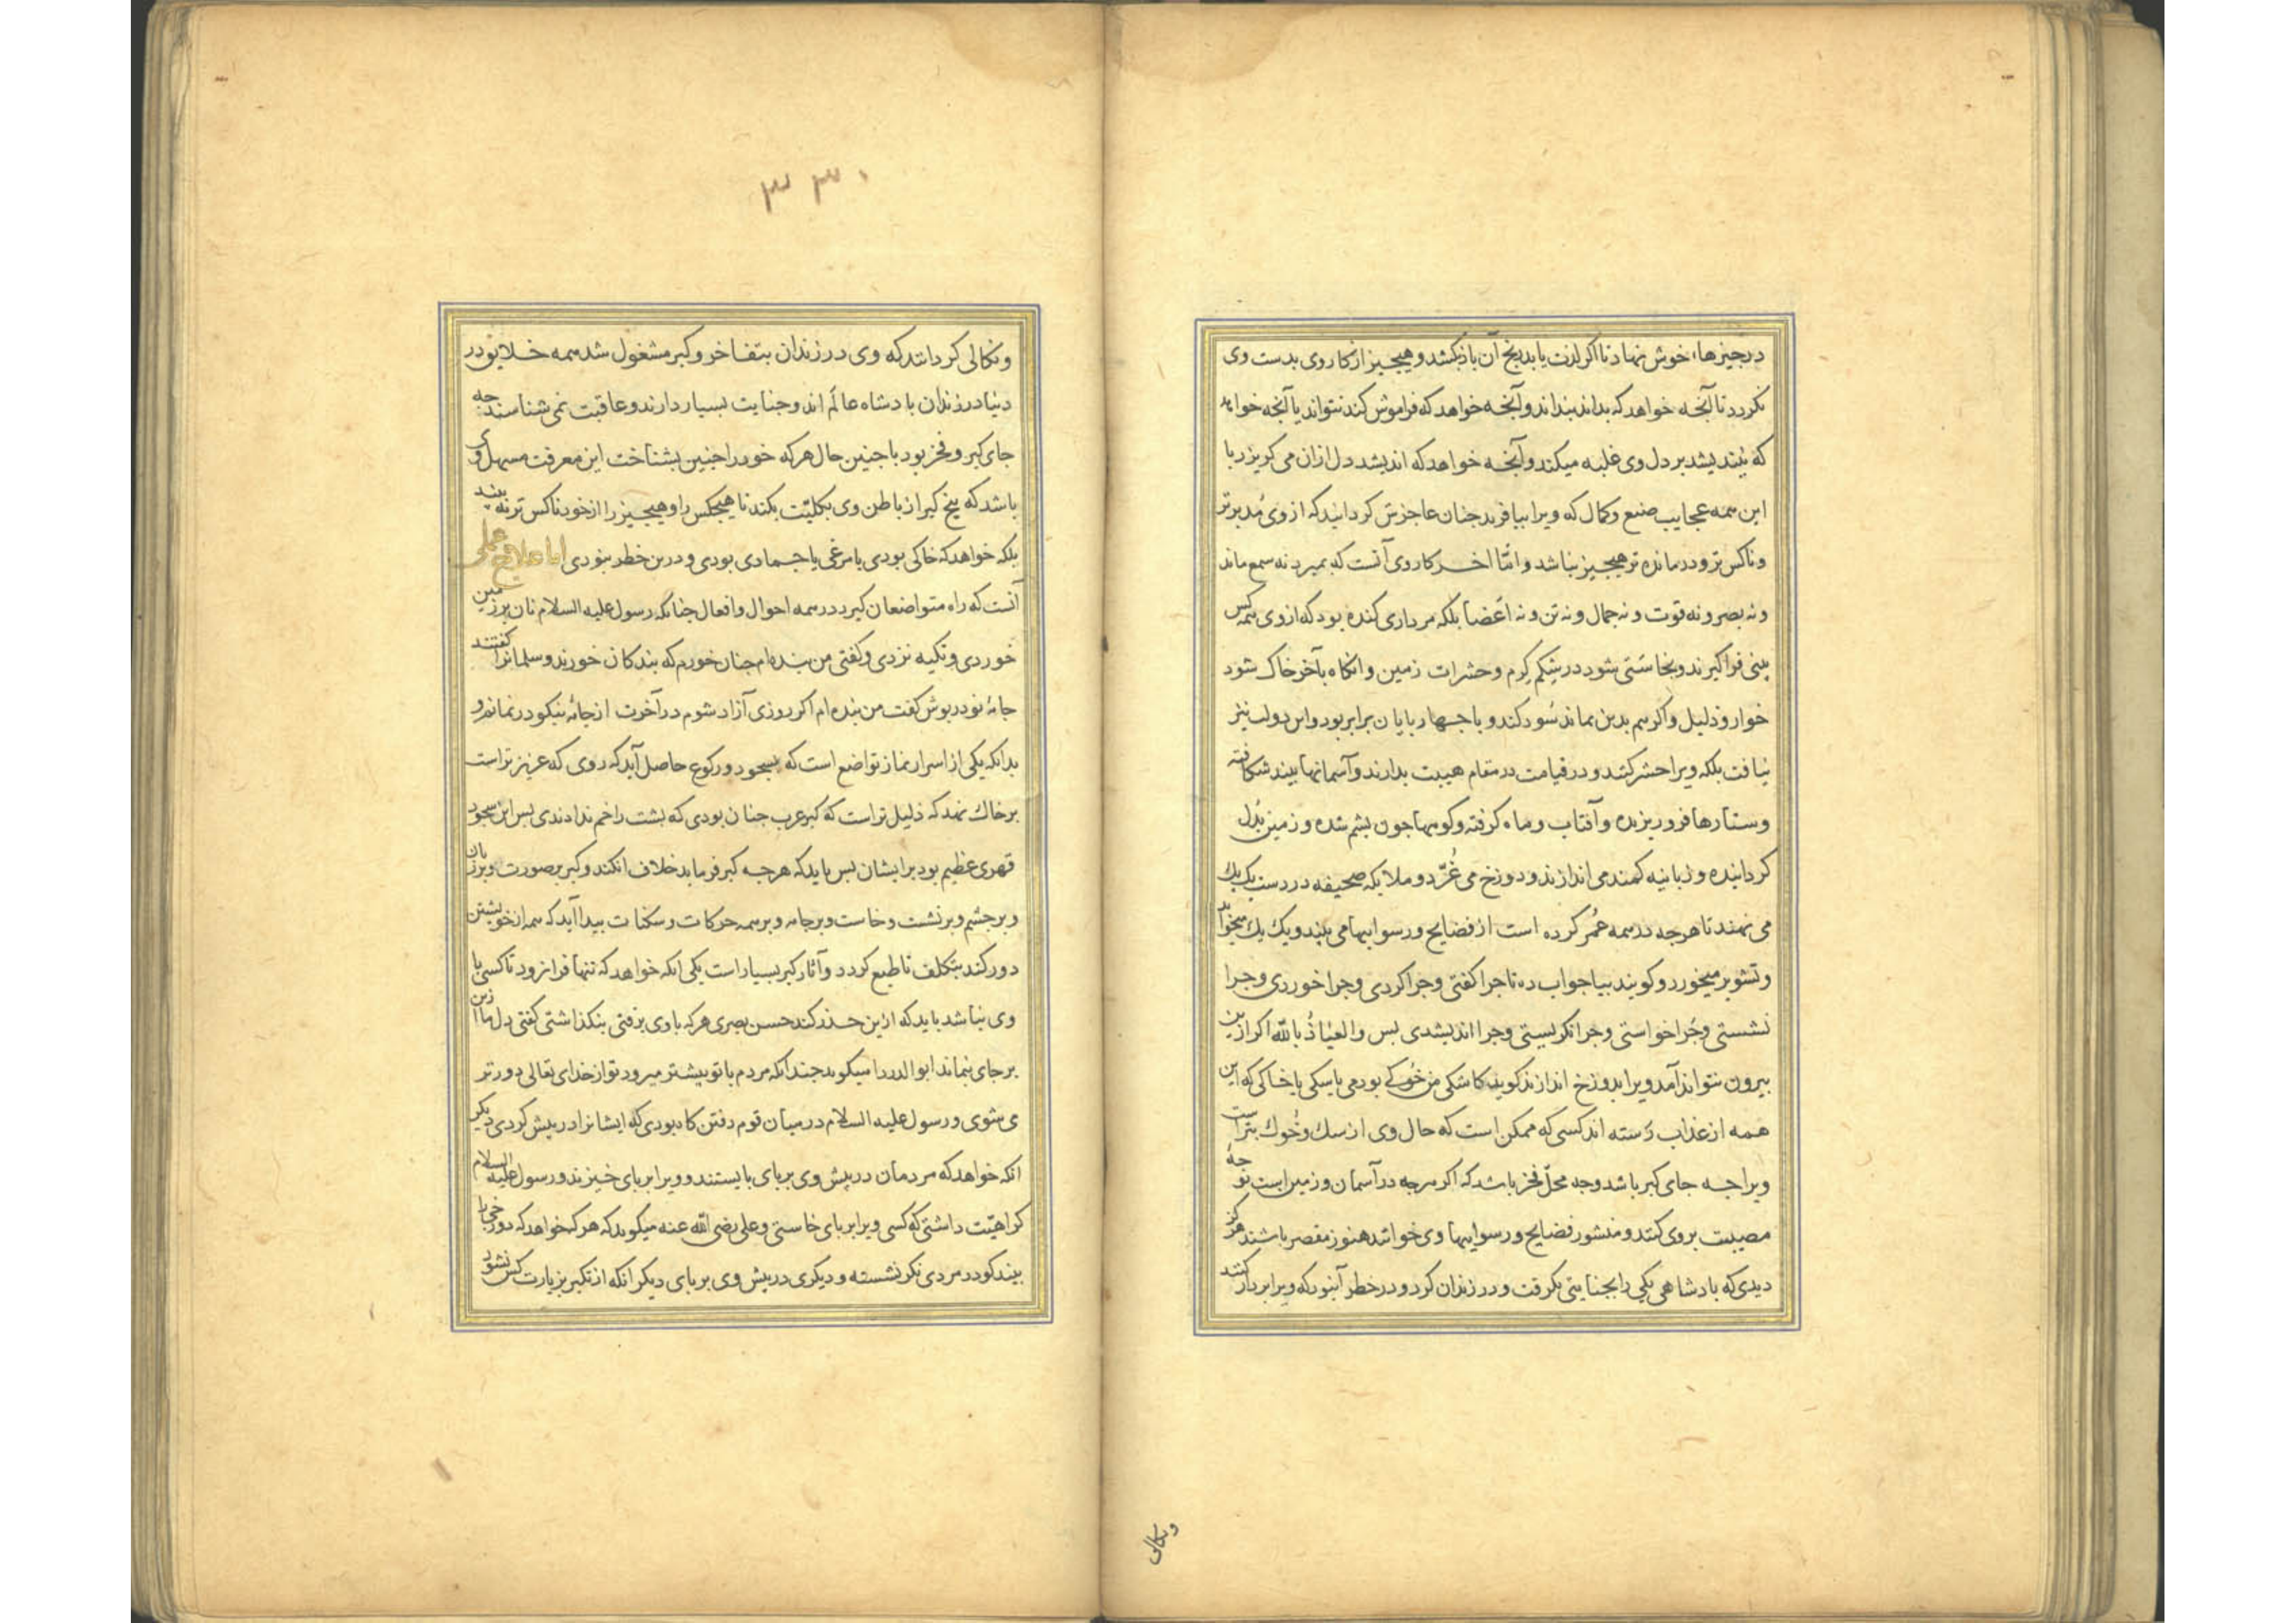 درچیزهاء خوش نهاد تا اکر لذت یابد برنج آن بازکشد و هیچ چیز از کار وی بدست وی
نکردد تا آنچه خواهد که بداند بنداند و آنچه خواهد که فراموش کند نتواند یا آنچه خواهد
که نیندیشد بر دل وی غلبه میکند و آنچه خواهد که اندیشد دل ازان می کریزد با
این همه عجایب صنع و کمال که ویرا بیافرید جنان عاجزش کردانید که از وی مدبرتر
و ناکس تر و درمانده تر هیچ چیز نباشد و اما اخر کار وی آنست که بمیرد نه سمع ماند
و نه بصر و نه قوت و نه جمال و نه تن و نه اعضا بلکه مرداری کنده بود که از وی همه کس
بینی فرا کیرند و نجاستی شود در شکم کرم و حشرات زمین و انکاه بآخر خاک شود
خوار و ذلیل و اکر هم بدین بماند سود کند و با جهارپایان برابر بود و این دولت نیز
نیافت بلکه ویرا حشر کنند و در قیامت در مقام هیبت بدارند و آسمانها بیند شکافته
و ستارها فرو ریزیده و آفتاب و ماه کرفته و کوهها جون پشم شده و زمین بدل
کردانیده و زبانیه کمند می اندازند و دوزخ می غرّد و ملایکه صحیفه در دست یک یک
می نهند تا هرجه در همه عمر کرده است از فضایح و رسواییها می بیند و یک یک میخواند
و تشویر میخورد و کویند بیا جواب ده تا جرا کفتی و جرا کردی و جرا خوردی و جرا
نشستی و جرا خواستی و جرا نکریستی و جرا اندیشیدی بس و العیاذ بالله اکر ازین
بیرون نتواند آمد ویرا بدوزخ اندازند کوید کاشکی من خوکی بودمی یا سکی یا خاکی که این
همه از عذاب رسته اند کسی که ممکن است که حال وی از سک و خوک بترست
ویرا جه جای کبر باشد و جه محلّ فخر باشد که اکر هرجه در آسمان و زمین است نوحه
مصیبت بر وی کنند و منشور فضایح و رسواییهاء وی خوانند هنوز مقصر باشند هرکز
دیدی که بادشاهی یکی را بجنایتی بکرفت و در زندان کرد و در خطر آن بود که ویرا بر دار کنند
و نکالی
۳۳۰
و نکالی کردانند که وی در زندان بتفاخر و کبر مشغول شد همه خلایق در
دنیا در زندان بادشاه عالم اند و جنایت بسیار دارند و عاقبت نمی شناسند جه
جای کبر و فخر بود با جنین حال هرکه خود را جنین بشناخت این معرفت مسهل وی
باشد که بیخ کبر از باطن وی بکلیّت بکند تا هیچکس را و هیچ چیز را از خود ناکس تر نه بیند
بلکه خواهد که خاکی بودی یا مرغی یا جمادی بودی و درین خطر نبودی اما علاج عملی
آنست که راه متواضعان کیرد در همه احوال و افعال جنانکه رسول علیه السلام نان بر زمین
خوردی و تکیه نزدی و کفتی من بنده ام جنان خورم که بندکان خورند و سلمانرا کفتند
جامۀ نو در بوش کفت من بنده ام اکر روزی آزاد شوم در آخرت از جامۀ نیکو درنمانم و
بدانکه یکی از اسرار نماز تواضع است که بسجود و رکوع حاصل آید که روی که عزیز تر است
بر خاک نهد که ذلیل تر است که کبر عرب جنان بودی که بشت را خم ندادندی بس این سجود
قهری عظیم بود بر ایشان بس باید که هرجه کبر فرماید خلاف ان کند و کبر بر صورت و بر زبان
و بر جشم و بر نشست و خاست و بر جامه و بر همه حرکات و سکنات بیدا آید که همه از خویشتن
دور کند بتکلف تا طبع کردد و آثار کبر بسیار است یکی انکه خواهد که تنها فرا نرود تا کسی با
وی نباشد باید که ازین حذر کند حسن بصری هرکه با وی برفتی بنکذاشتی کفتی دل ما ازین
بر جای نماند ابو الدردا میکوید جندانکه مردم با تو بیشتر میرود تو از خدای تعالی دورتر
می شوی و رسول علیه السلام در میان قوم رفتن کاه بودی که ایشانرا در پیش کردی دیکر
انکه خواهد که مردمان در پیش وی بر پای بایستند و ویرا بر پای خیزند و رسول علیه السلام
کراهیّت داشتی که کسی ویرا بر پای خاستی و علی رضی الله عنه میکوید که هرکه خواهد که دوزخی را
بیند کو در مردی نکر نشسته و دیکری در پیش وی بر پای دیکر انکه از تکبر بزیارت کس نشود